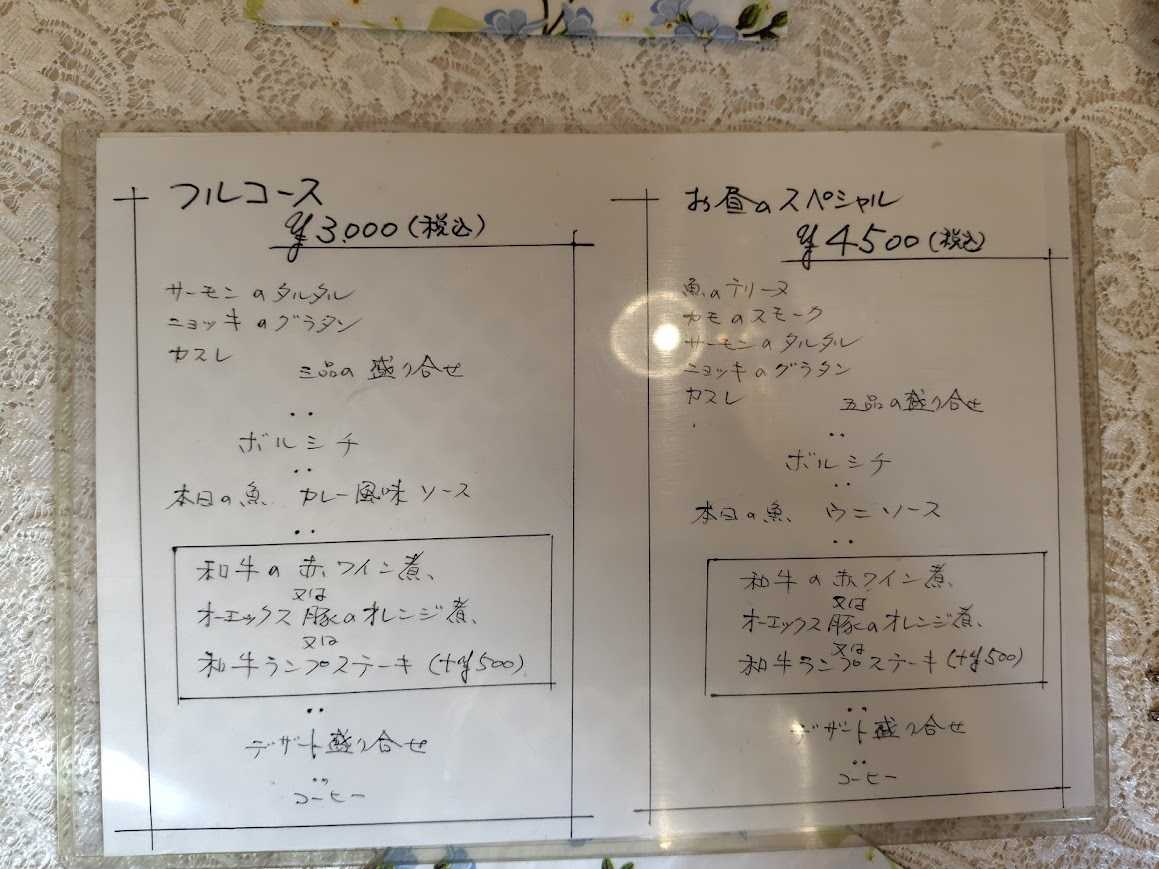 フルコース
¥3,000(税込)
サーモンのタルタル
ニョッキのグラタン
カスレ
三品の盛り合せ
ボルシチ
本日の魚、カレー風味ソース
和牛の赤ワイン煮、
又は
オーエックス豚のオレンジ煮、
又は
和牛ランプステーキ(+¥500)
デザート盛り合せ
コーヒー
お昼のスペシャル
¥4500(税込)
魚のテリーヌ
カモのスモーク
サーモンのタルタル
ニョッキのグラタン
カスレ
五品の盛り合せ
ボルシチ
本日の魚、ウニソース
和牛の赤ワイン煮、
又は
オーエックス豚のオレンジ煮、
又は
和牛ランプステーキ(+¥500)
デザート盛り合せ
コーヒー